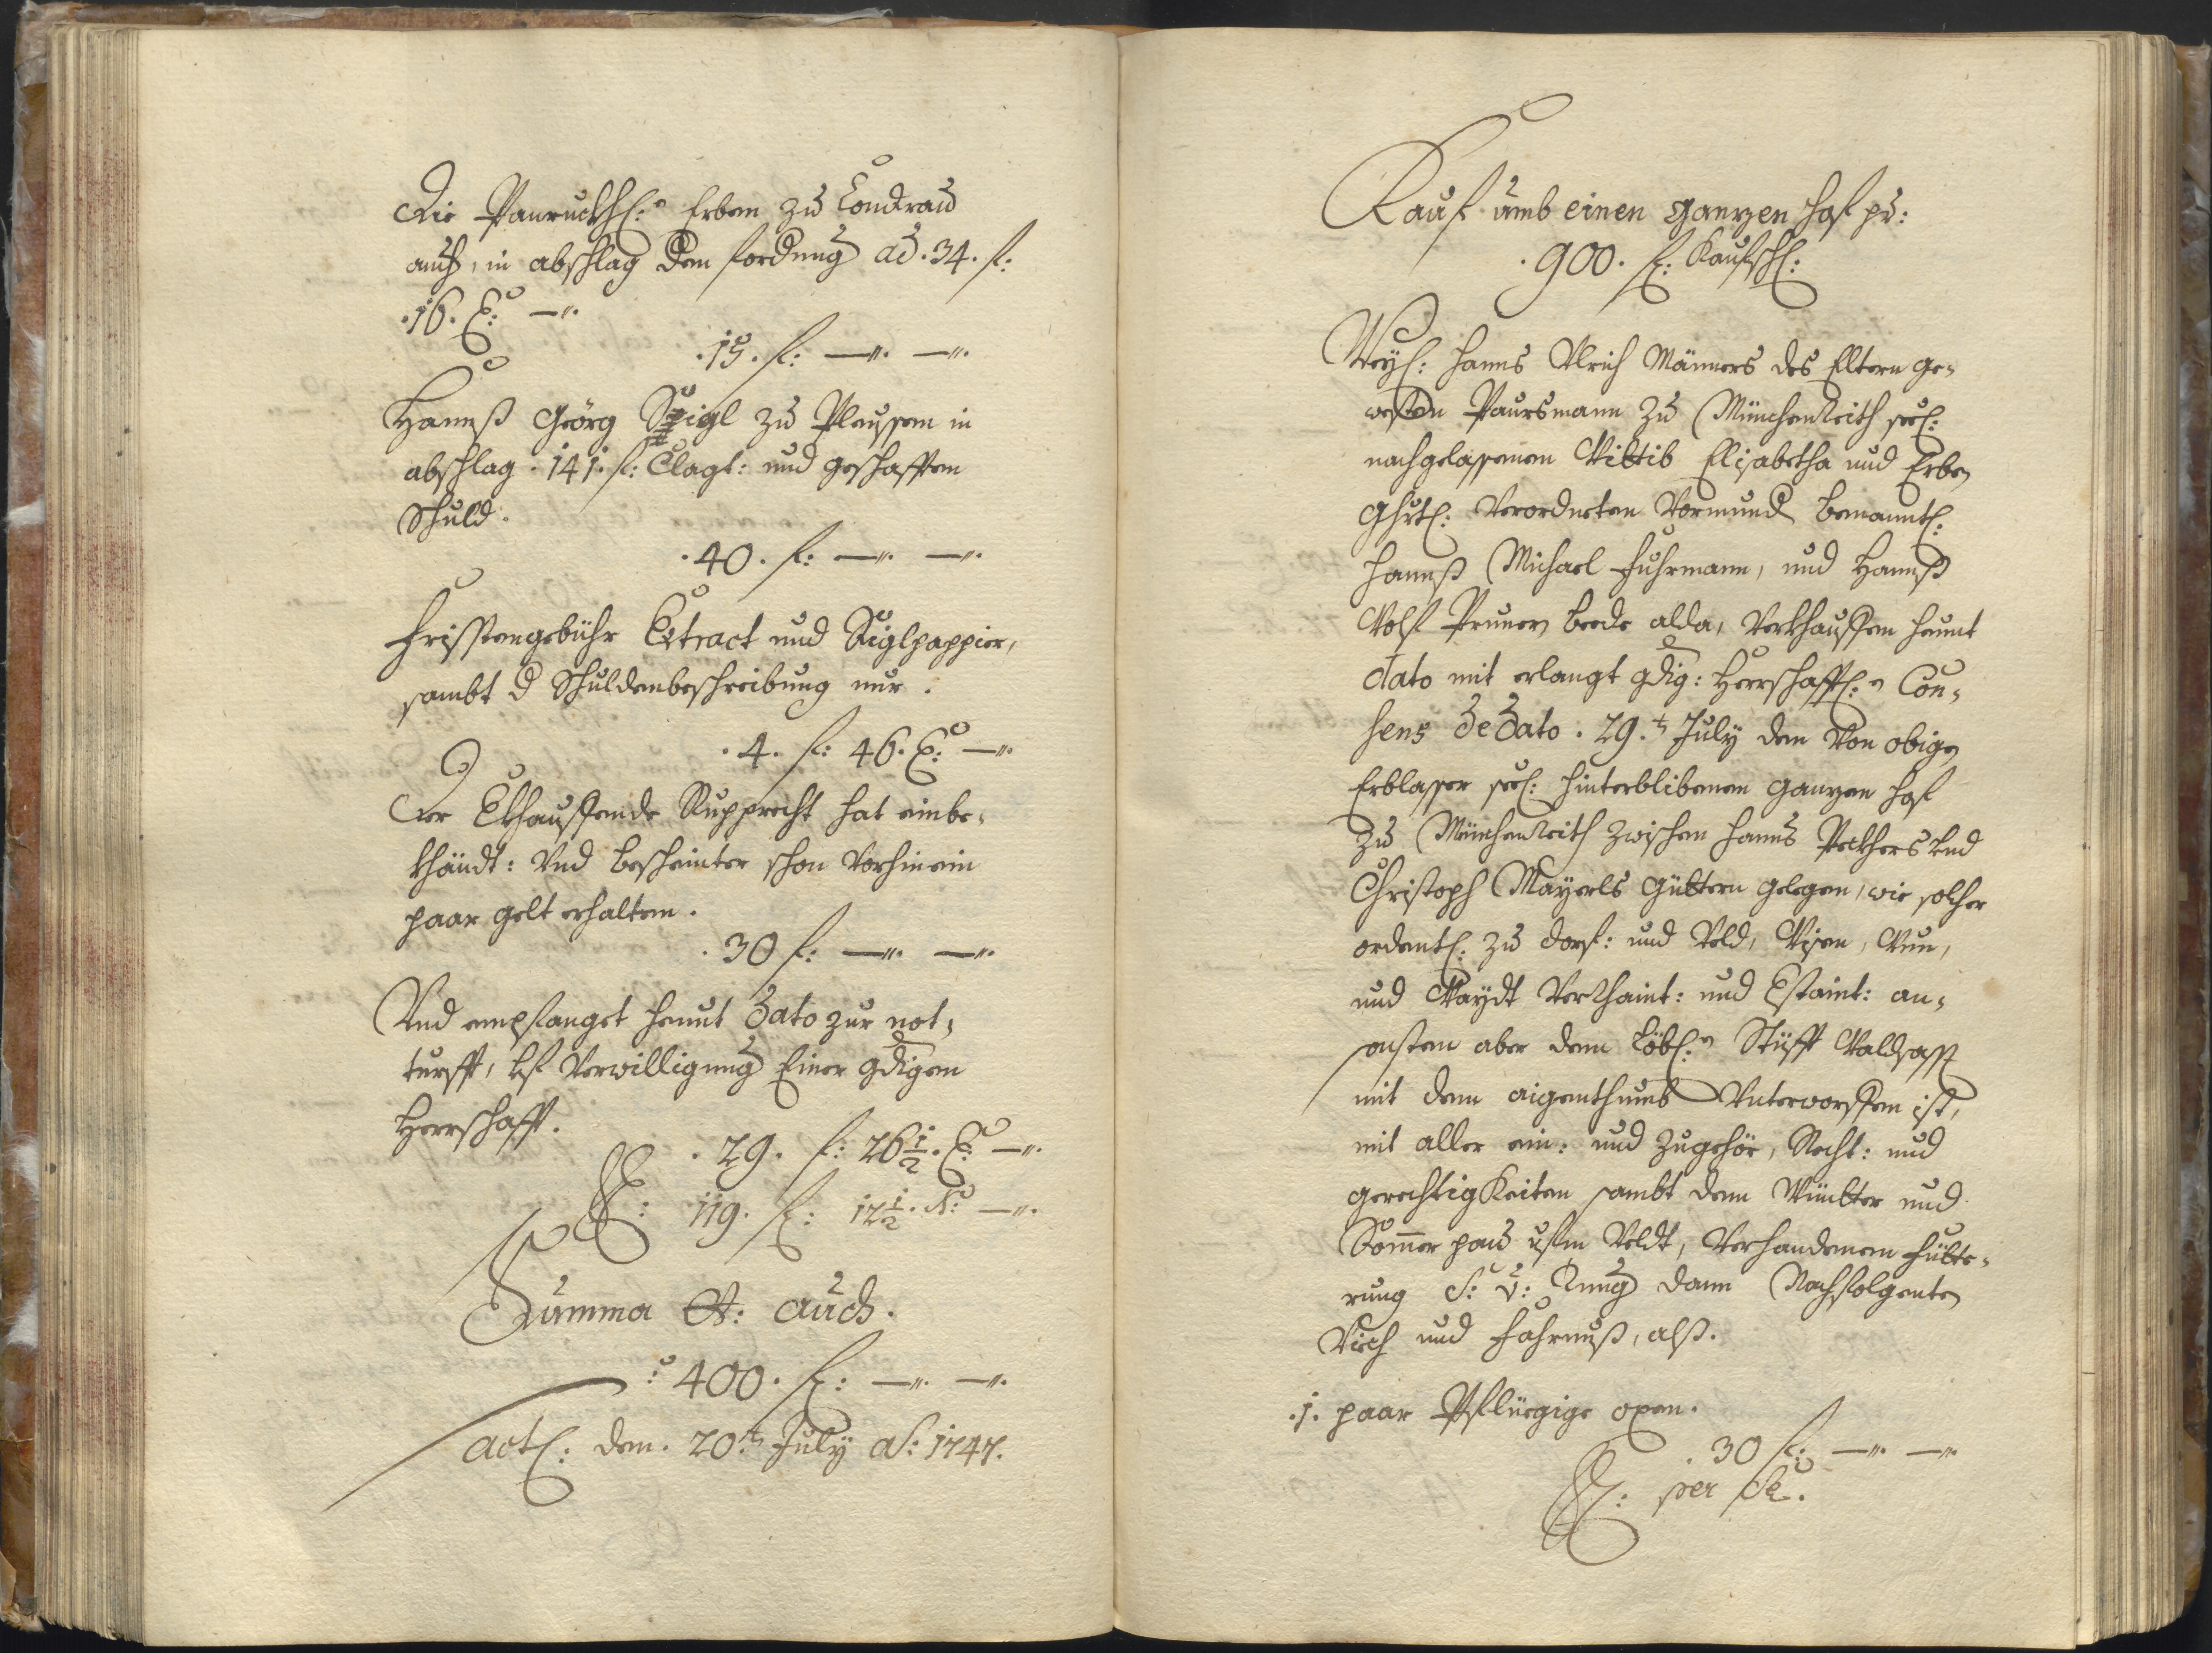 Die Panruckhl: Erben zu Condrau
auch, in abschlag dem fordrung ad .34. f:
.16. x: —".
.15. f: —". —".
Hannß Georg Spigl zu Pleussen in
abschlag .141. f: Clagt: und geschafften
Schuld.
.40. f: —". —".
Fristengebühr Extract und Siglpappier,
sambt d Schuldenbeschreibung nur.
.4. f: 46. x: —".
Der Ekhauffende Rupprecht hat einbe-
khändt: Und bescheinter schon vorhinein
paar gelt erhalten.
.30 f: —". —".
Und empfanget heunt dato zur not-
turfft, Verwilligung Einer gdigen
Herrschafft.
.29. f: 26 1/2. x: —".
119. f: 12 1/2. x: —".
Summa auch.
: 400. f: —". —".
Actl: den. 20.t July aõ: 1747.
Kauf umb einen ganzen Hof pr:
.900. f: Kaufschl:
Weyl: Hanns Ulrich Männers des Eltern ge-
westen Paursmann zu Münchenreith seel:
nachgelassenen Wittib Elisabetha und Erben
Ghrtl: Verordneten Vormund benanntl:
Hannß Michael Fuhrmann, und Hannß
Wolf Pruner beede alda, Verkhauffen heunt
dato mit erlangt gdig: Herrschafftl: Con-
sens de dato .29.t July den von obigen
Erblasser seel: hinterblibenen ganzen Hof
zu Münchenreith zwischen Hanns Peckhers und
Christoph Mayerls Güttern gelegen, wie solcher
ordentl: zu dorf: und Veld, Wisen, Wun,
und Waydt Verrhaint: und Estaint: an-
sonsten aber dem Löbl: Stüfft Waldsaßß
mit dem aigenthumb Unterworffen ist,
mit aller ein: und Zugehör, Recht: und
gerechtigkeiten sambt dem Wintter und
Sommer pau ufm Veldt, Verhandenem Fütte-
rung S: v: Tung dann Nachfolgenten
Viech und Fahrnuß, alß.
.1. paar Pflüegige oxen.
.30 f: —". —".
per se.